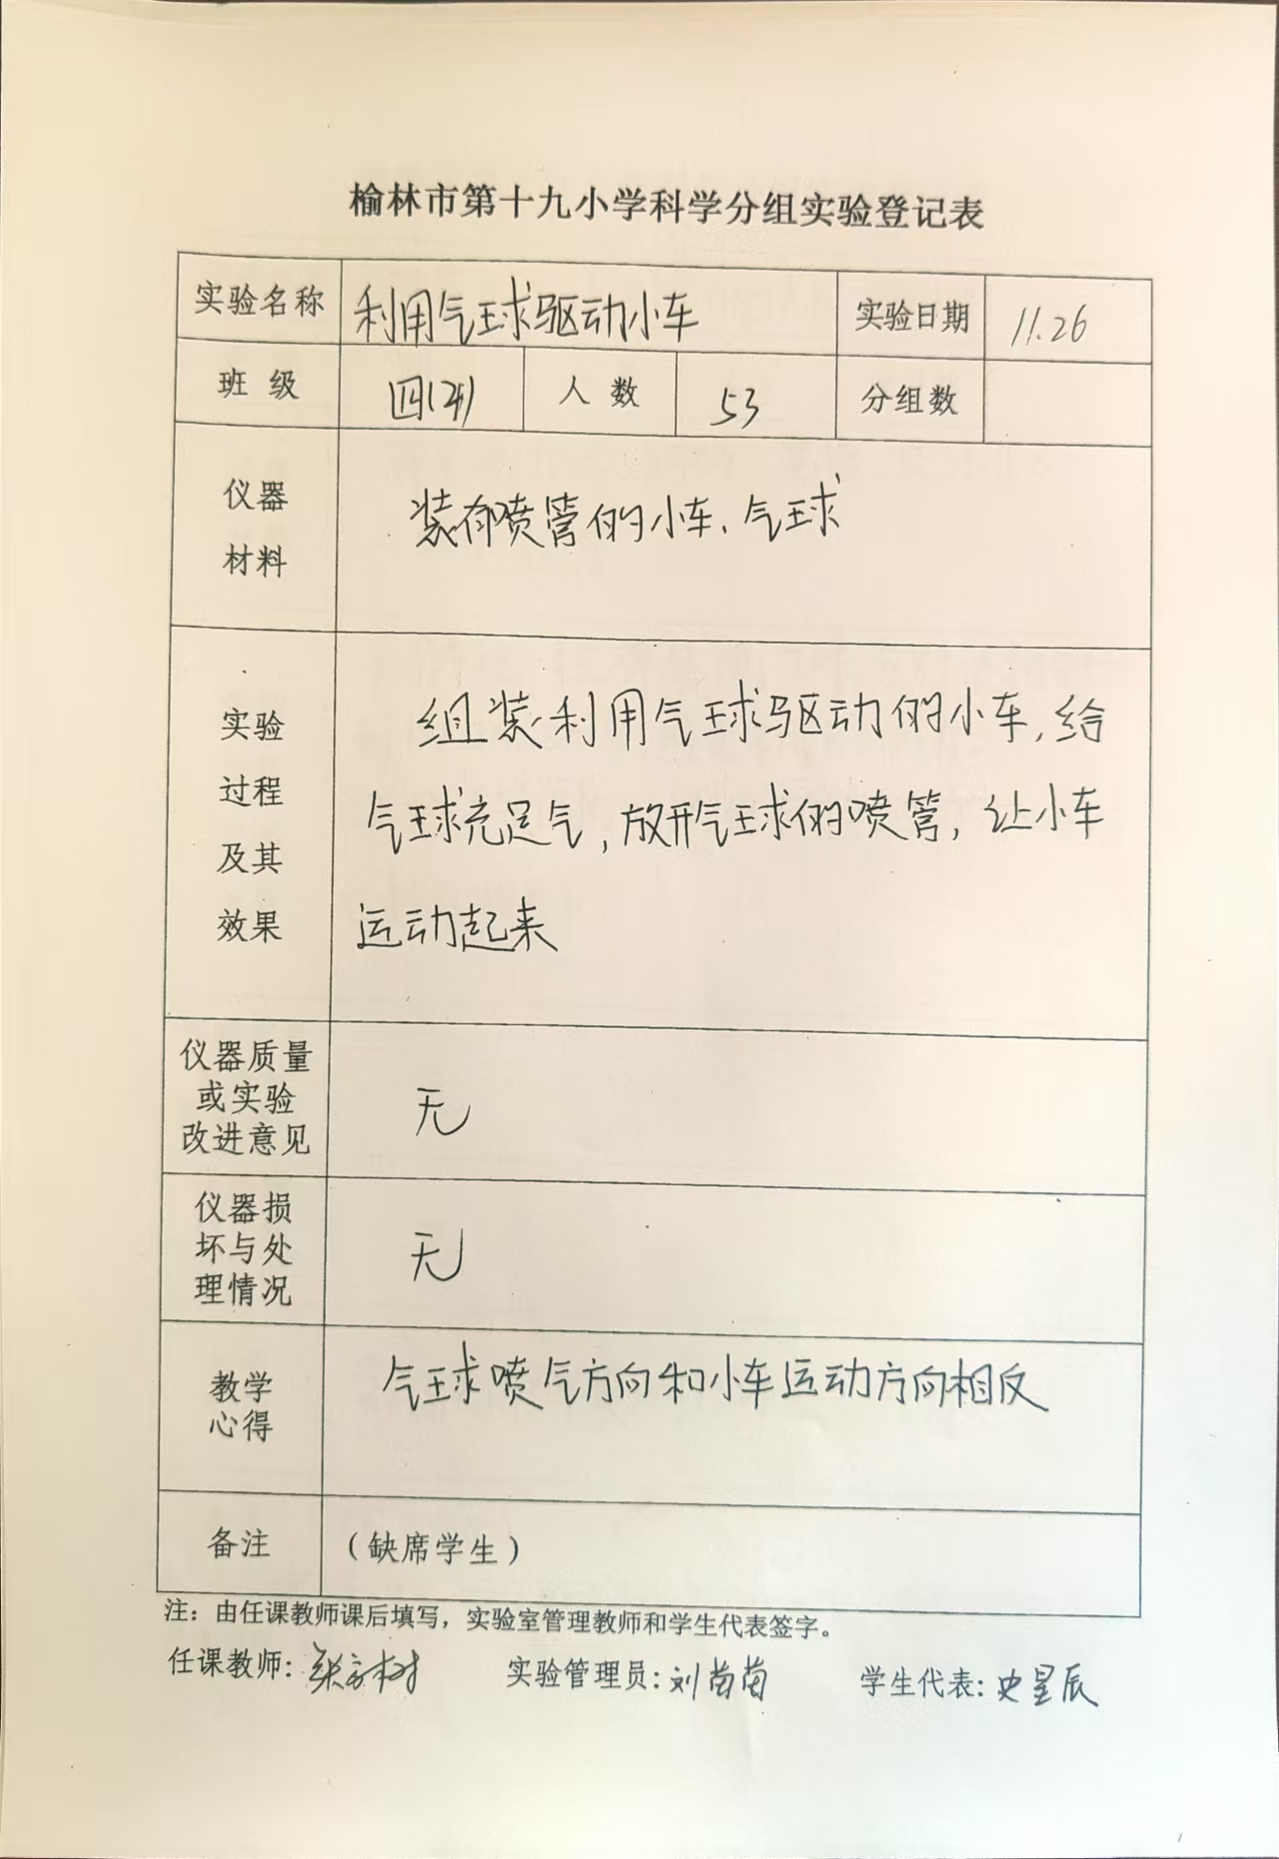 榆林市第十九小学科学分组实验登记表
实验名称 利用气球驱动小车 实验日期 11.26
班 级 人 数 53 分组数
仪器
材料
装有喷管的小车、气球
实验
过程
及其
效果
组装利用气球驱动的小车,给
气球充足气,放开气球的喷管,让小车
运动起来
仪器质量
或实验
改进意见
无
仪器损
坏与处
理情况
无
教学
心得
气球喷气方向和小车运动方向相反
备注 (缺席学生)
注:由任课教师课后填写,实验室管理教师和学生代表签字。
任课教师: 实验管理员:刘苗苗 学生代表:史星辰